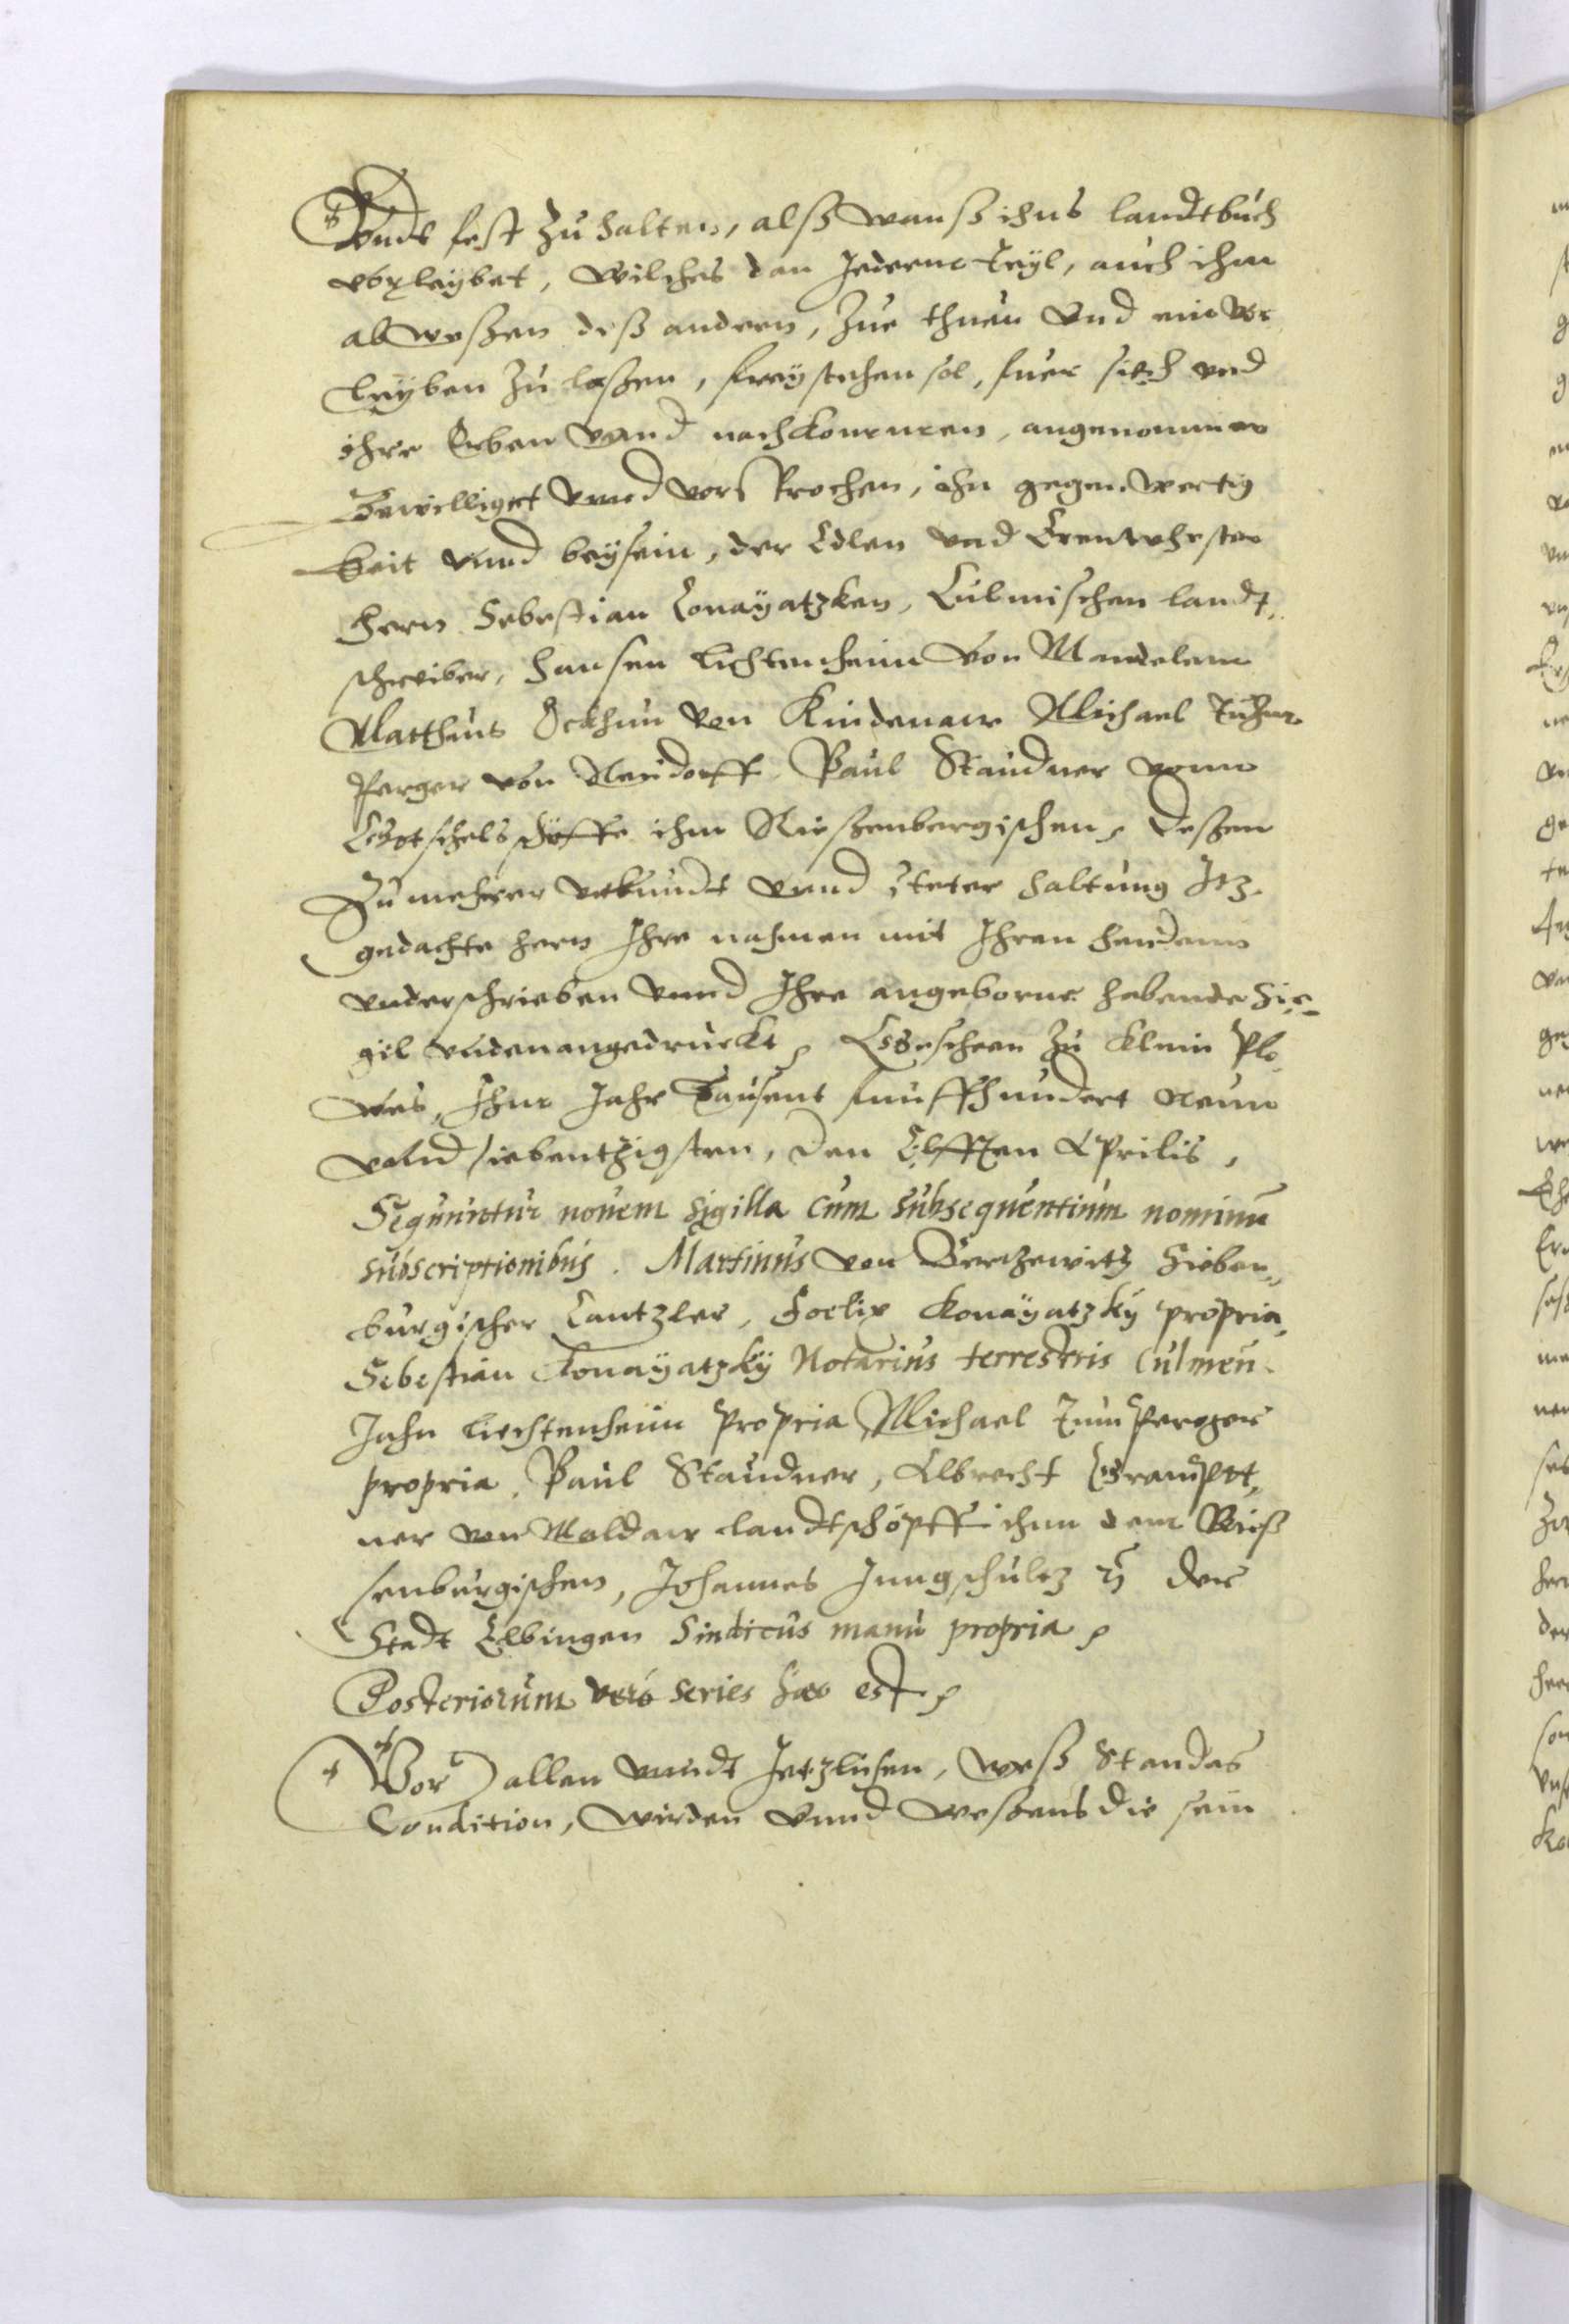 Vnndt fest zu halten, alß wanß ihns landtbuch
vorleybet, Wilches dan Jederm teyl, auch ihm
abweßen deß andern, zue thuen Vnd ein Vor
leyben zu laßen, frey stehen sol, fuer sich vnd
ihre Erben Vnnd nachkommen, angenommen
Bewilliget Vnnd vorsprochen, ihn gegenwertig
keit Vnnd beysein, der Edlen vnd Erenvhesten
Hern Sebestian Conayatzken, Culmischen landt
schreiber, Hansen liechtenheim Von Mandelem
Matheus Ockhun Von Kindenaw Michael Zum
perger von Neudorff Paul Staudner vonn
Gotschels ihm Rießenbergischen, deßen
Zu mehrer vrkundt vnnd steter haltung Itz
gedachte hern Ihre nahmen mit Ihren henden
vnderschrieben vnnd Ihre angeborne habende Sie
gil vndenangedruckt, Geschen zu klein Plo
wes, Ihm Jahr Tausent funffhundert Neun
vnnd siebentzigsten, den Elfften Aprilis,
Sequuntur nouem sigilla cum subsequentium nominū
subscriptionibus. Martinus von Bertzewitz Sieben
burgischer Cantzler, Foelix Konayatzky propria
Sebestian Konayatzky Notarius terrestris Culmen.
Jahn liechtenheim propria Michael Zumperger
propria. Paul Staudner, Albrecht
ner von Moldaw landtschöpff ihnn dem Rieß
senburgischen, Johannes Jungschultz der
Stadt Elbingen Sindicus manu propria
Posteriorum vero series haec est
Vor allen vnndt Jetzlichen, weß Standes
Condition, wirden Vnnd weßens die sein